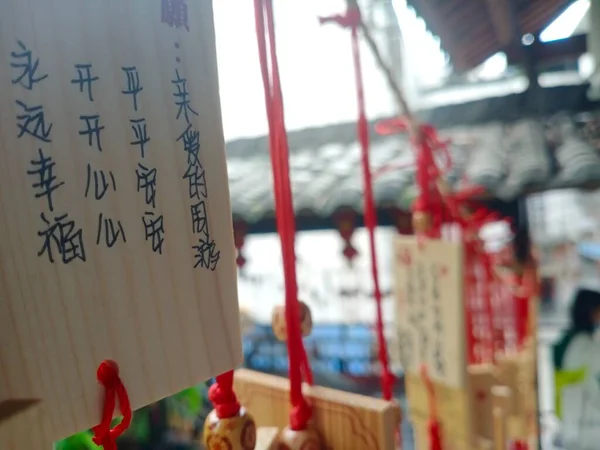 願：亲爱的周游
平平安安
开开心心
永远幸福